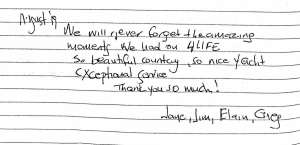 August 19
We will never forget the amazing
moments we had on 4LIFE
So beautiful country, so nice yacht
exceptional service
Thank you so much!
Jim, Elain, Greg